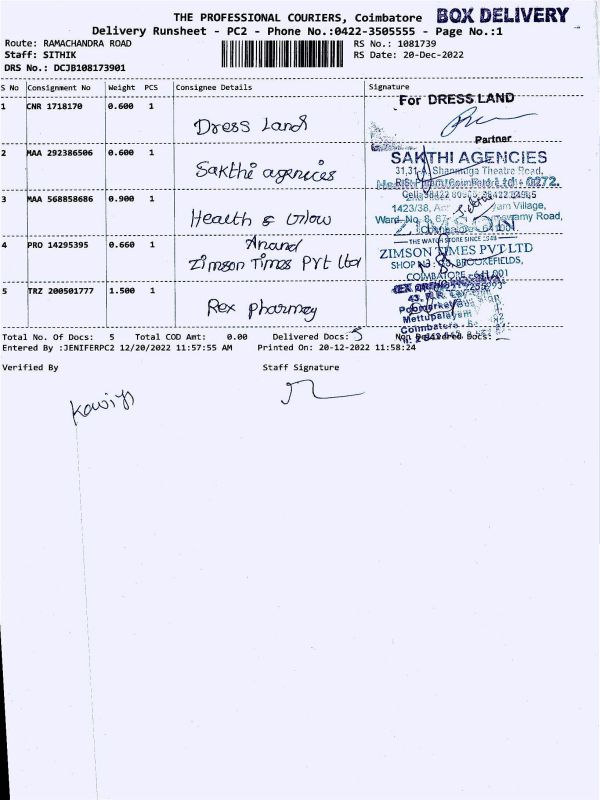 THE PROFESSIONAL COURIERS, Coimbatore BOX DELIVERY
Delivery Runsheet - PC2 - Phone No.:0422-3505555 - Page No.:1
Route: RAMACHANDRA ROAD RS No.: 1081739
Staff: SITHIK RS Date: 20-Dec-2022
DRS No.: DCJB108173901
S No Consignment No Weight PCS Consignee Details Signature
For DRESS LAND
1 CNR 1718170 0.600 1
Dress Land
Partner
2 MAA 292386506 0.600 1
SAKTHI AGENCIES
Sakthi agencies
Shanmuga Theatre Road,
0272.
3 MAA 568858686 0.900 1
1423/38, Village,
Health & Glow
Ward No. 8, 67 Road,
4 PRO 14295395 0.660 1
Anand
THE WATCH STORE SINCE 1948
Zimson Times Pvt Ltd
ZIMSON TIMES PVT LTD
SHOP NO BROOKEFIELDS,
COIMBATORE - 641 001
5 TRZ 200501777 1.500 1
Rex pharmey
43,
Mettupalayam
Coimbatore
Total No. Of Docs: 5 Total COD Amt: 0.00 Delivered Docs: 5 Non Delivered Docs:
Entered By :JENIFERPC2 12/20/2022 11:57:55 AM Printed On: 20-12-2022 11:58:24
Verified By Staff Signature